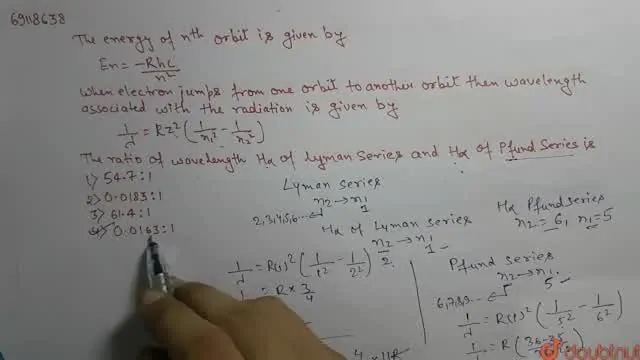 69118638
The energy of nth orbit is given by
En = -Rhc/n²
When electron jumps from one orbit to another orbit then wavelength
associated with the radiation is given by
1/λ = RZ² (1/n₁² - 1/n₂²)
The ratio of wavelength Hα of Lyman Series and Hα of Pfund Series is
1) 54.7:1
2) 0.0183:1
3) 61.4:1
4) 0.0163:1
Lyman Series
n₂→n₁
2,3,4,5,6... 1
Hα of Lyman Series
n₂→n₁
2 1
1/λ = R(1)² (1/1² - 1/2²)
= R × 3/4
Hα Pfund Series
n₂ = 6, n₁ = 5
Pfund Series
n₂→n₁
6,7,8,9... 5
1/λ = R(1)² (1/5² - 1/6²)
= R (36-25
doubtnut